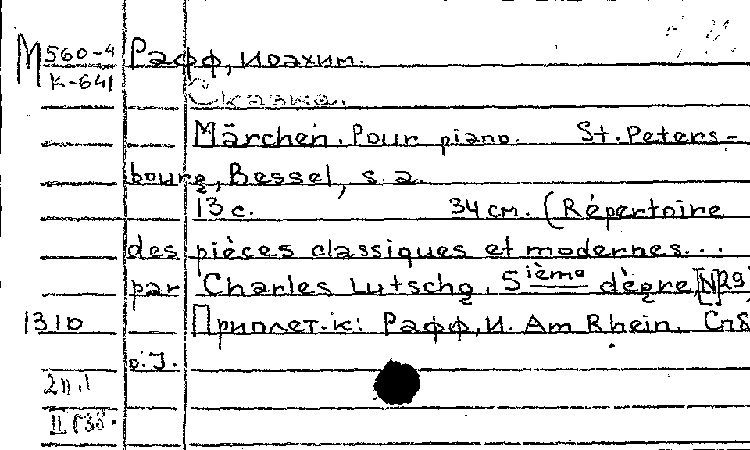 М 560-4 Рафф, Иоахим.
К-641
Сказка.
Märchen. Pour piano. St.-Peters-
bourg, Bessel, s. a.
13 с. 34 см. (Répertoire
des pièces classiques et modernes...
par Charles Lutschg. 5ième dègre, [N]29
1310 Приплет. к: Рафф, И. Am Rhein. Спб
o. J.
2п.1